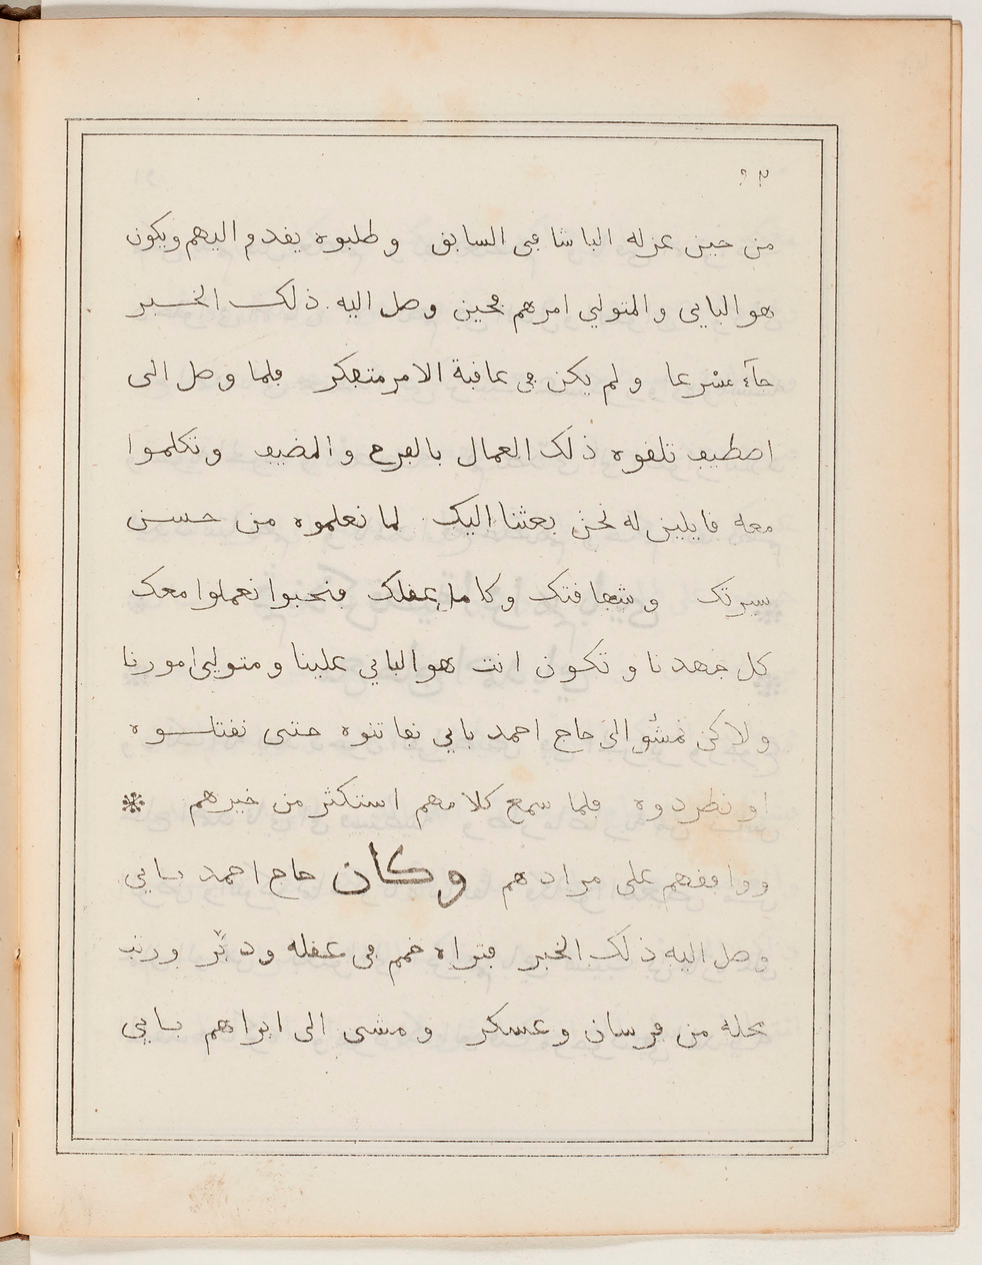 من حين عزله الباشا في السابق وطلبوه يقدم اليهم ويكون
هو الباي والمتولي امرهم فحين وصل اليه ذلك الخبر
جآء مسرعا ولم يكن في عاقبة الامر متفكر فلما وصل الى
اصطيف تلقوه ذلك العمال بالفرح والمضيف وتكلموا
معه قايلين له نحن بعثنا اليك لما نعلموه من حسن
سيرتك وشجاعتك وكامل عقلك فنحبوا نعملوا معك
كل جهدنا وتكون انت هو الباي علينا ومتولي امورنا
ولاكن نمشو الى حاج احمد باي نقاتلوه حتى نقتلوه
او نطردوه فلما سمع كلامهم استكثر من خيرهم
ووافقهم على مرادهم وكان حاج احمد باي
وصل اليه ذلك الخبر فتراه خمم في عقله ودبّر
محله من فرسان وعسكر ومشى الى ابراهم باي